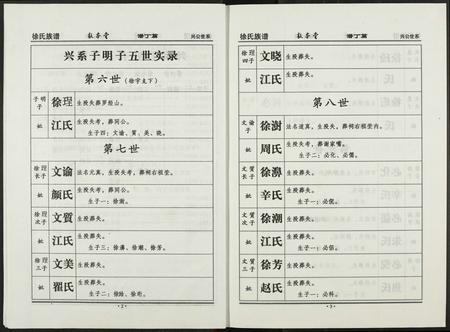 徐氏族谱
增丁篇
兴公世系
兴系子明子五世实录
第六世（徐宇支下）
子明子 徐理 生殁失葬罗经山。
妣 江氏 生殁失考，葬同公。
生子四：文谕、質、美、晓。
第七世
徐理长子 文谕 法名元真，生殁失考，葬祠右祖茔。
妣 颜氏 生殁失考，葬同公。
生子一：徐澍。
徐理次子 文質 生殁葬失。
妣 江氏 生殁葬失。
生子三：徐濞、徐潮、徐芳。
徐理三子 文美 生殁葬失。
妣 翟氏 生殁葬失。
生子二：徐
·2·
徐氏族谱
增丁篇
兴公世系
徐理四子 文晓 生殁葬失。
妣 江氏 生殁葬失。
第八世
文谕子 徐澍 法名道真，生殁失，葬祠右祖茔内。
妣 周氏 生殁失考，葬谢家嘴。
生子二：必化、必儒。
文質长子 徐濞 生殁葬失。
妣 辛氏 生殁葬失。
生子一：必俊。
文質次子 徐潮 生殁葬失。
妣 江氏 生殁葬失。
生子一：必倍。
文質三子 徐芳 生殁葬失。
妣 赵氏 生殁葬失。
生子一：必科。
·3·